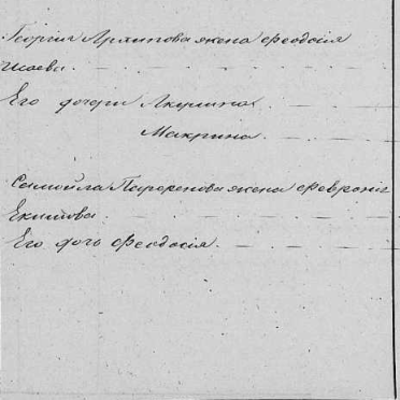 Георгія Архипова жена Феодосія
Исаева.
Его дочери Акулина
Макрина
Самойла Парфенова жена Февронія
Екимова
Его дочь Феодосія